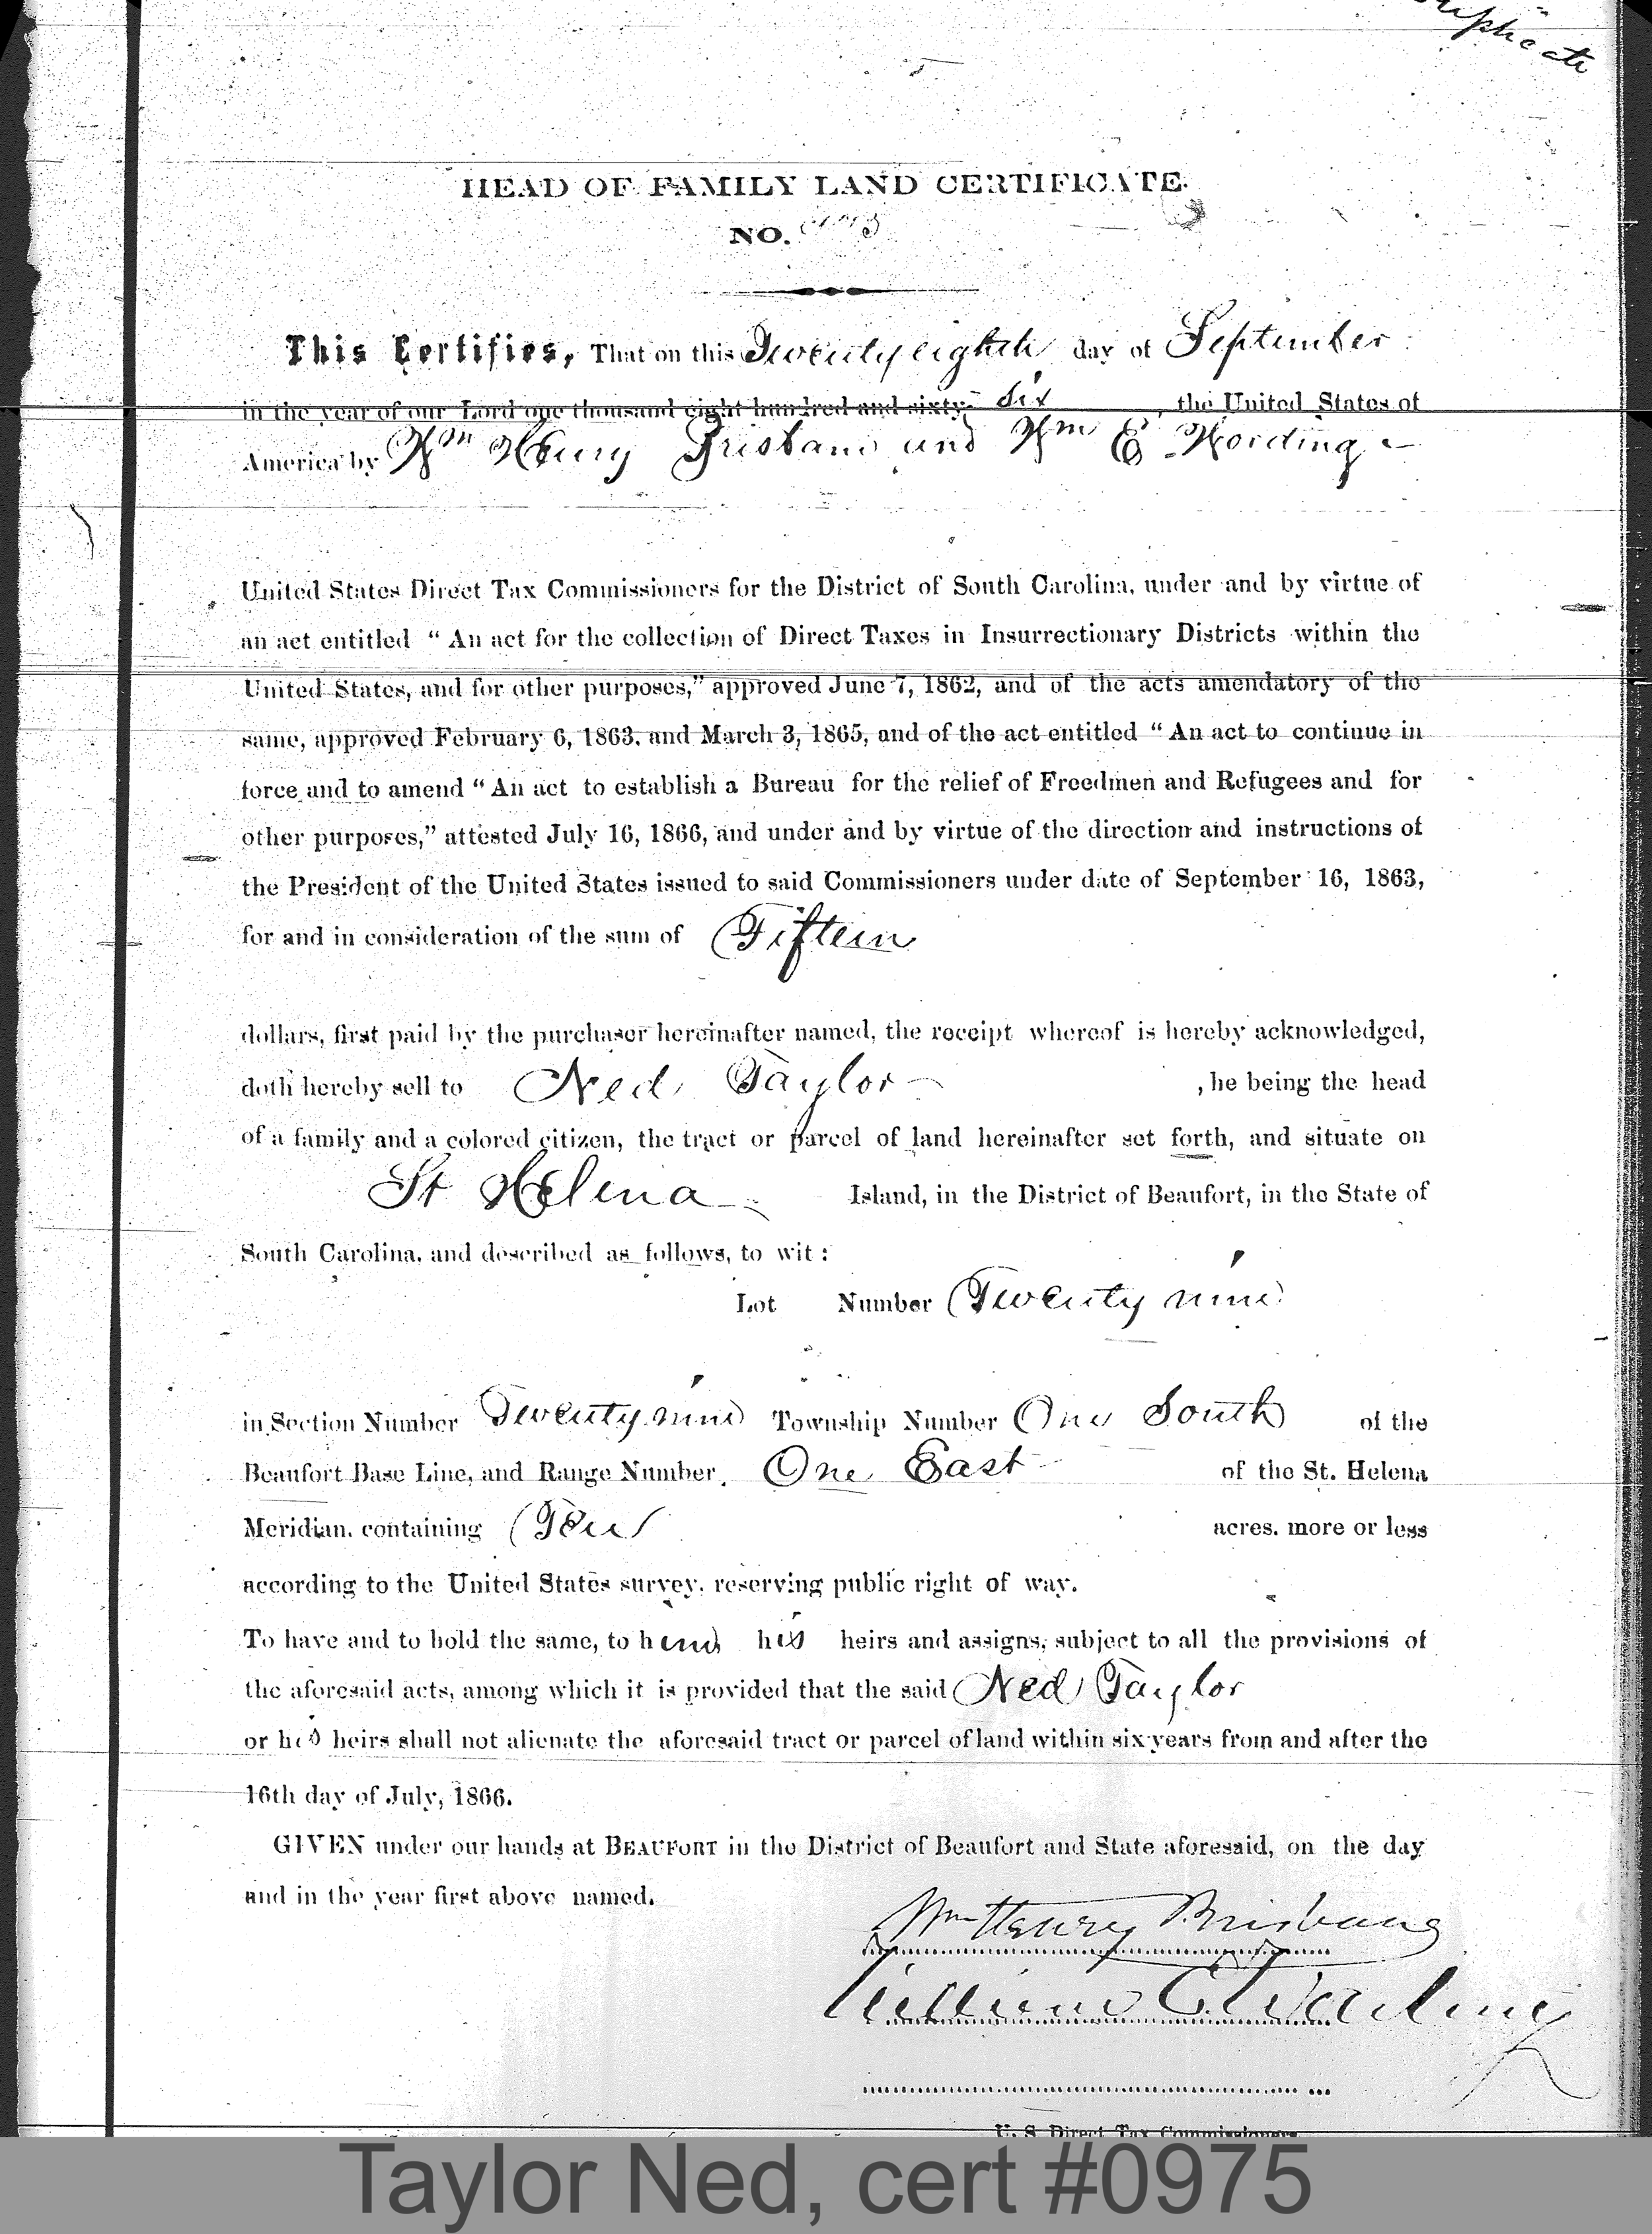 HEAD OF FAMILY LAND CERTIFICATE.
NO.
This Certifies, That on this Twenty eighth day of September
in the year of our Lord one thousand eight hundred and sixty- six , the United States of
America by Wm Henry Brisbane and Wm E. Wording
United States Direct Tax Commissioners for the District of South Carolina, under and by virtue of
an act entitled “ An act for the collection of Direct Taxes in Insurrectionary Districts within the
United States, and for other purposes,” approved June 7, 1862, and of the acts amendatory of the
same, approved February 6, 1863, and March 3, 1865, and of the act entitled “ An act to continue in
force and to amend “ An act to establish a Bureau for the relief of Freedmen and Refugees and for
other purposes,” attested July 16, 1866, and under and by virtue of the direction and instructions of
the President of the United States issued to said Commissioners under date of September 16, 1863,
for and in consideration of the sum of Fifteen
dollars, first paid by the purchaser hereinafter named, the receipt whereof is hereby acknowledged,
doth hereby sell to Ned Taylor , he being the head
of a family and a colored citizen, the tract or parcel of land hereinafter set forth, and situate on
St Helena Island, in the District of Beaufort, in the State of
South Carolina, and described as follows, to wit :
Lot Number Twenty nine
in Section Number Twenty nine Township Number One South of the
Beaufort Base Line, and Range Number, One East of the St. Helena
Meridian, containing Ten acres, more or less
according to the United States survey, reserving public right of way.
To have and to hold the same, to him his heirs and assigns, subject to all the provisions of
the aforesaid acts, among which it is provided that the said Ned Taylor
or his heirs shall not alienate the aforesaid tract or parcel of land within six years from and after the
16th day of July, 1866.
GIVEN under our hands at BEAUFORT in the District of Beaufort and State aforesaid, on the day
and in the year first above named.
Wm Henry Brisbane
William E. Wording
U. S. Direct Tax Commissioners
Taylor Ned, cert #0975